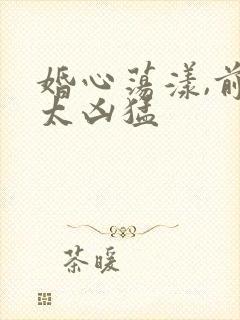 婚心荡漾,前
太凶猛
茶暖